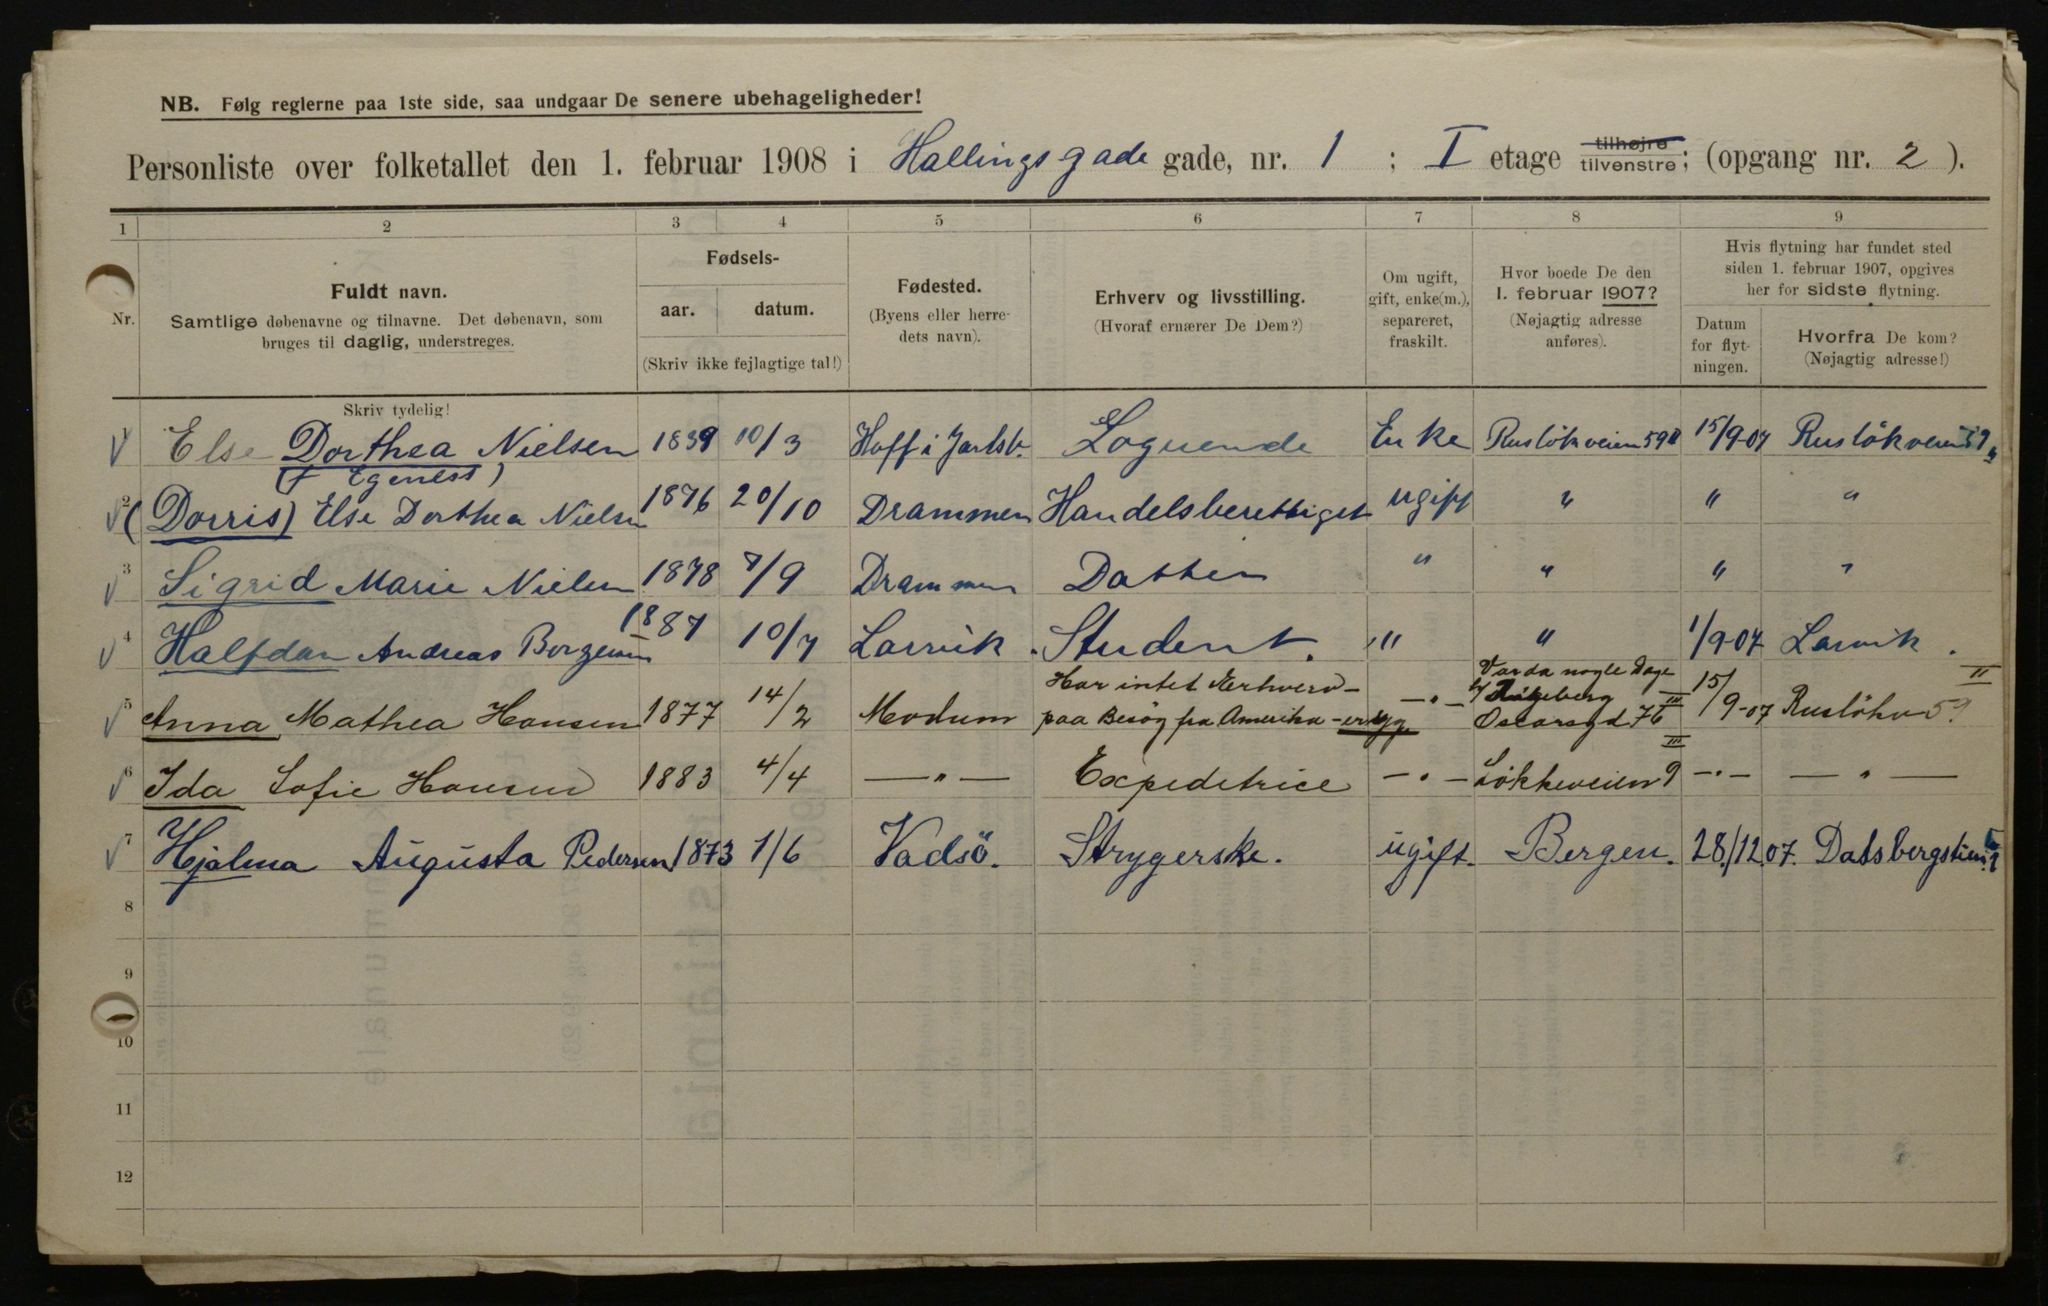 NB. Følg reglerne paa 1ste side, saa undgaar De senere ubehageligheder!
Personliste over folketallet den 1. februar 1908 i Hallings gade gade, nr. 1 ; I etage tilhøjre tilvenstre; (opgang nr. 2 ).
1 2 3 4 5 6 7 8 9
Nr.
Fuldt navn.
Samtlige døbenavne og tilnavne. Det døbenavn, som
bruges til daglig, understreges.
Skriv tydelig!
Fødsels-
aar. datum.
(Skriv ikke fejlagtige tal!)
Fødested.
(Byens eller herre-
dets navn).
Erhverv og livsstilling.
(Hvoraf ernærer De Dem?)
Om ugift,
gift, enke(m.),
separeret,
fraskilt.
Hvor boede De den
1. februar 1907?
(Nøjagtig adresse
anføres).
Hvis flytning har fundet sted
siden 1. februar 1907, opgives
her for sidste flytning.
Datum
for flyt-
ningen.
Hvorfra De kom?
(Nøjagtig adresse!)
1 Else Dorthea Nielsen 1839 10/3 Hoff i Jarlsb. Logerende Enke Rusløkveien 59 II 15/9-07 Rusløkveien 59 II
(f Egeness)
2 (Dorris) Else Dorthea Nielsen 1876 20/10 Drammen Handelsberettiget ugift " " "
3 Sigrid Marie Nielsen 1878 7/9 Drammen Datter " " " "
4 Halfdan Andreas Borgersen 1887 10/7 Larvik Student. " " 1/9-07 Larvik.
Har intet Nerhverv- Var da nogle Dage
5 Anna Mathea Hansen 1877 14/2 Modum paa Besøg fra Amerika - -"- Oscarsgd 76 III 15/9-07 Rusløkv 59 II
6 Ida Sofie Hansen 1883 4/4 -"- Expeditrice -"- Løkkeveien 9 III -"- -"-
7 Hjalma Augusta Pedersen 1873 1/6 Vadsö. Strygerske. ugift. Bergen. 28/12 07.
8
9
10
11
12